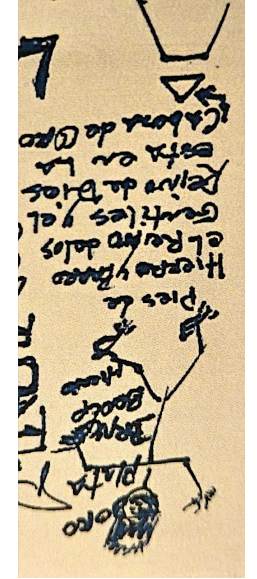 ORO
PLATA
Pies de
Hierro y Barro
el Reino delos
Gentiles y el
Reino de Dios
Esta en La
Cabeza de Oro